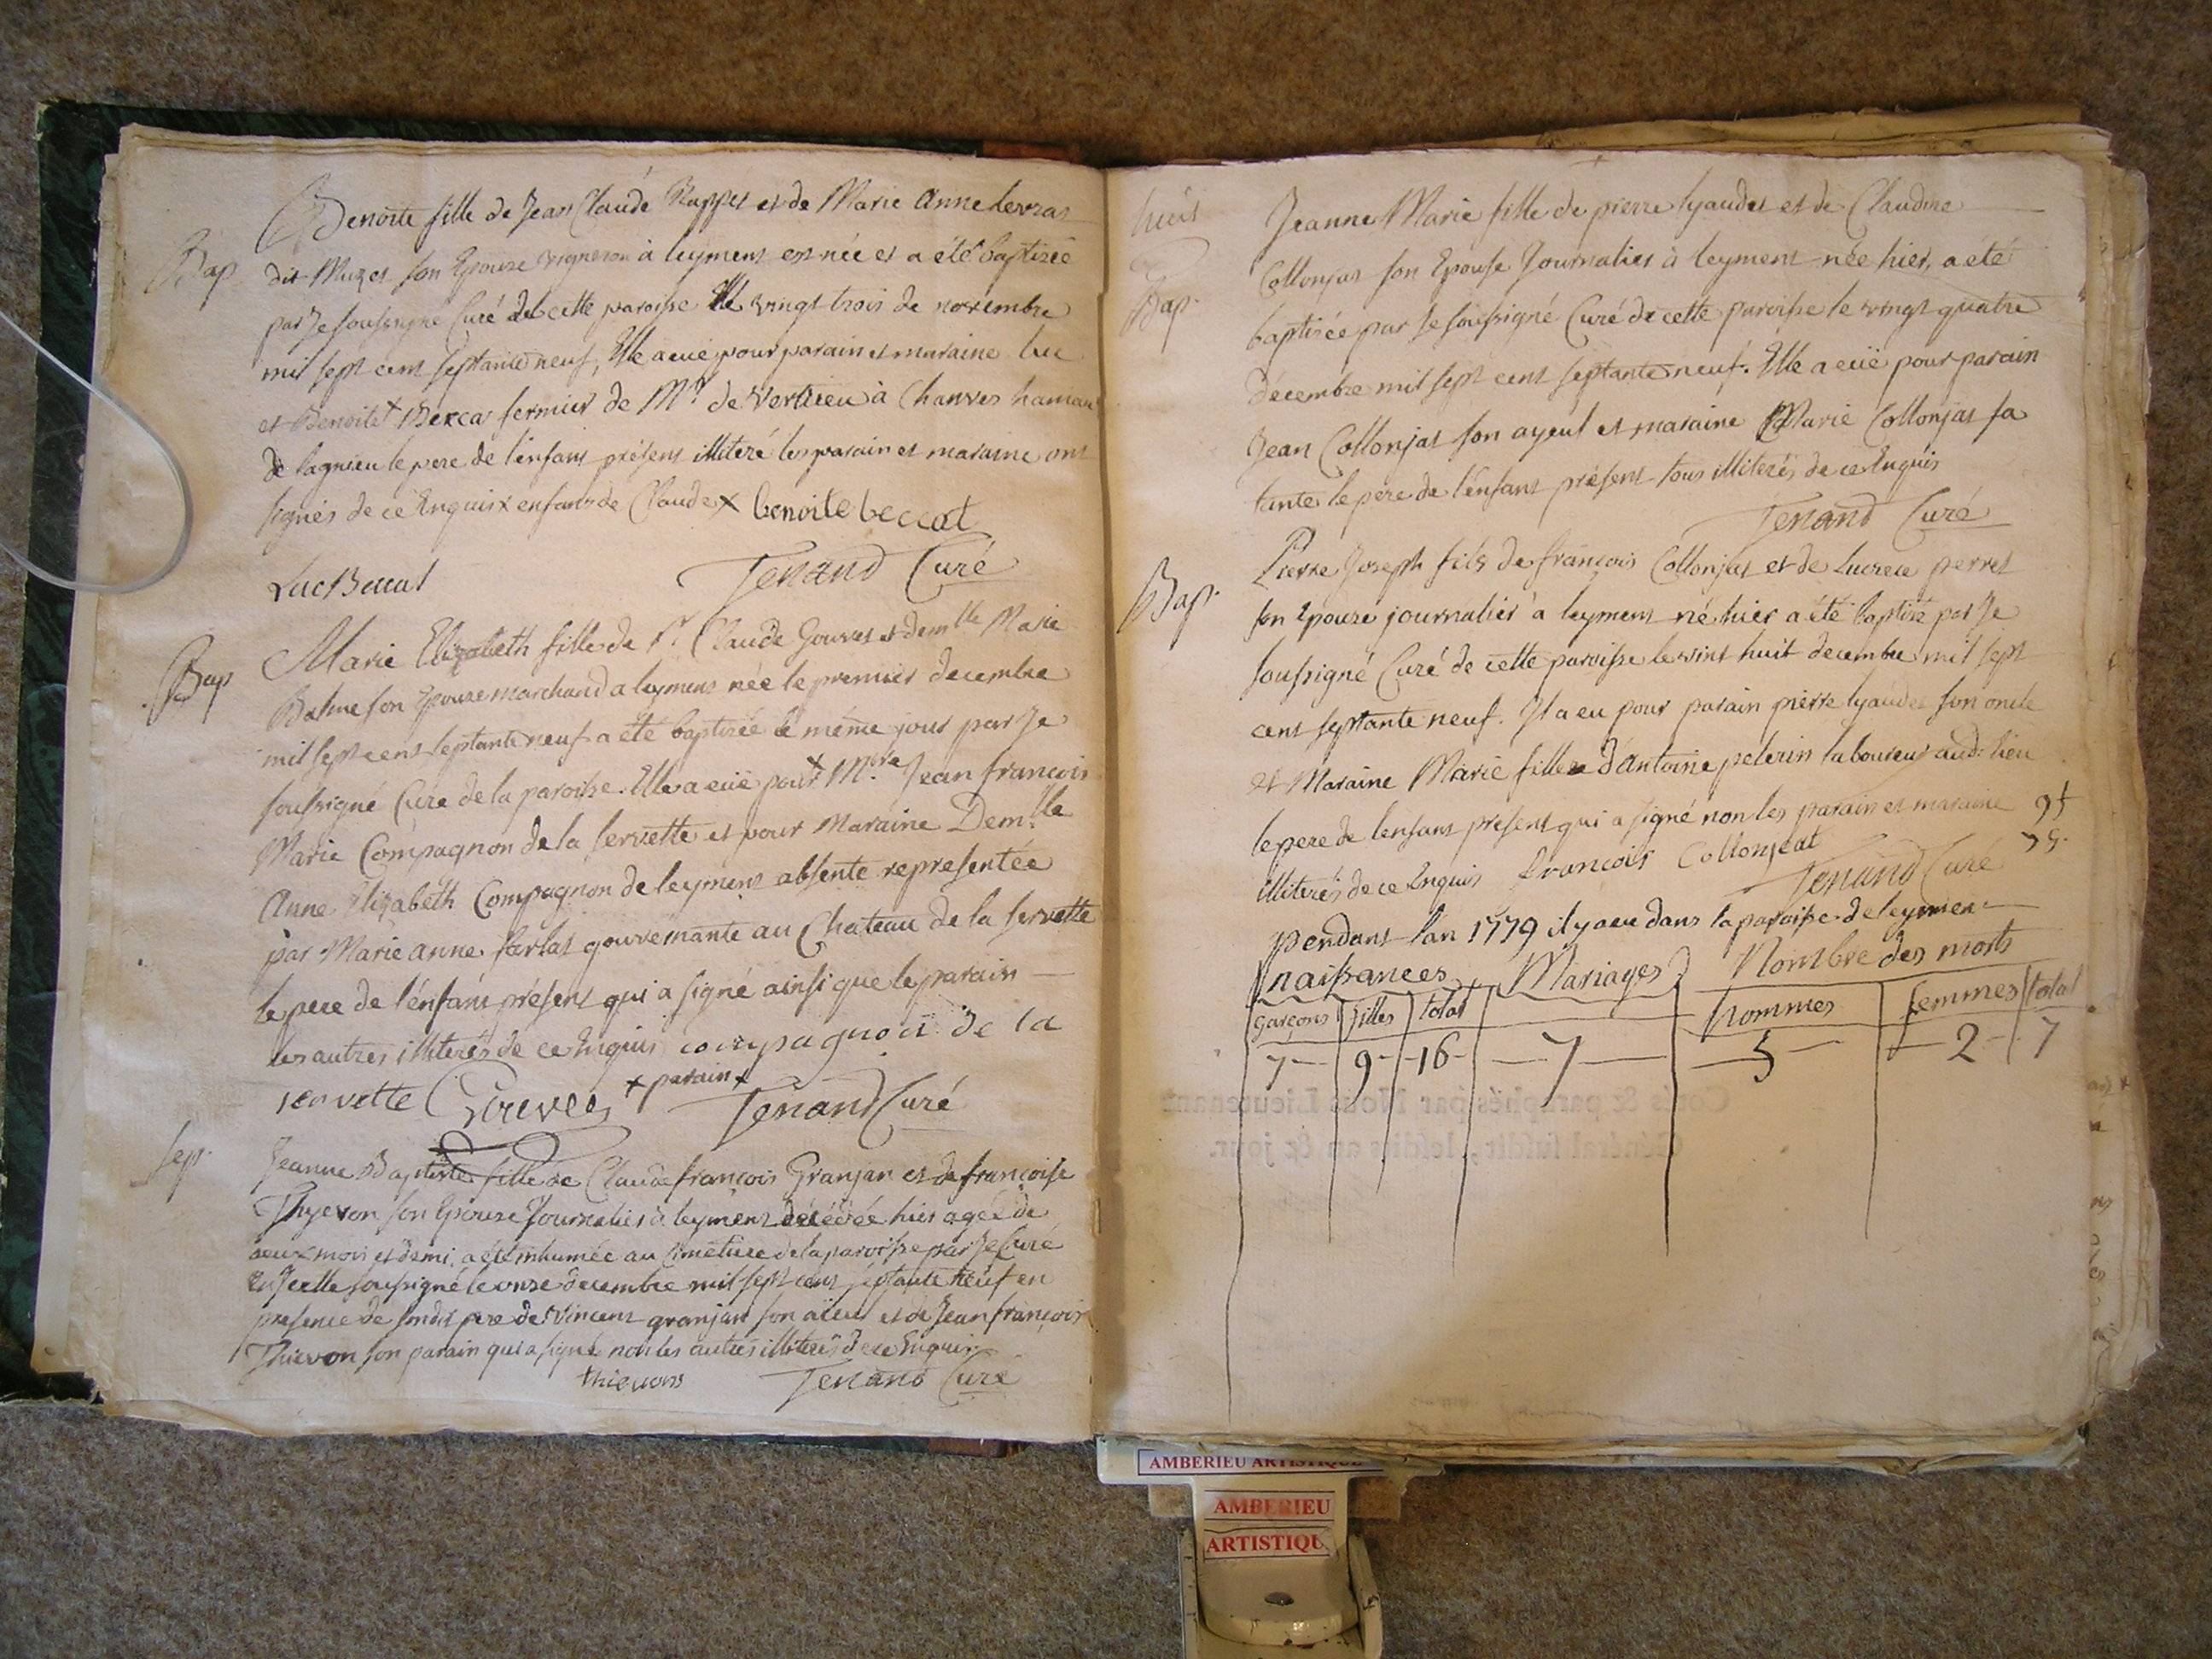 Bap
Benoite fille de Jean Claude Rappet et de Marie Anne Levrat
dit Muzet son Epouse vigneron à leyment est née et a été baptizée
par Je soussigné Curé de cette paroisse le vingt trois de novembre
mil sept cent septante neuf, Elle a euë pour parain et maraine Luc
et Benoite + Beccat fermier de Mr. de Vertrieu à Chanves hameau
de lagnieu le pere de l'enfant présent illiteré les parain et maraine ont
signés de ce Enquis x enfans de Claude x benoite beccat
Luc Beccat
Tenand Curé
Bap
Marie Elizabeth fille de Sr. Claude Gouvet et demlle Marie
Balme son Epouse marchand a leyment née le premier decembre
mil sept cent septante neuf a été baptizée le même jour par Je
soussigné Curé de la paroisse. Elle a euë pour + M.re Jean francois
Marie Compagnon de la servette et pour Maraine Dem.lle
Anne Elizabeth Compagnon de leyment absente representée
par Marie anne sarlat gouvernante au Chateau de la servette
le pere de l'enfant présent qui a signé ainsi que le parain
les autres illiterés de ce Enquis compagnon de la
servette Gouvet + parain + Tenand Curé
sep.
Jeanne Baptiste fille de Claude françois Granjan et de françoise
Thyevon son Epouse Journalier à leyment décédée hier agée de
deux mois et demi, a été inhumée au Cimetiere de la paroisse par Je Curé
En Icelle soussigné le onze decembre mil sept cent septante neuf en
presence de sondit pere de Vincent granjan son aieul et de Jean françois
Thievon son parain qui a signé non les autres illiterés de ce Enquis
thievons Tenand Curé
huit
Bap.
Jeanne Marie fille de pierre lyaudet et de Claudine
Collonjat son Epouse Journalier à leyment née hier, a été
baptizée par Je soussigné Curé de cette paroisse le vingt quatre
décembre mil sept cent septante neuf. Elle a euë pour parain
Jean Collonjat son ayeul et maraine Marie Collonjat sa
tante le pere de l'enfant présent tous illiterés de ce Enquis
Tenand Curé
Bap.
Pierre Joseph fils de françois Collonjat et de Lucrece perret
son Epouse journalier à leyment né hier a été baptizé par Je
soussigné Curé de cette paroisse le vint huit decembre mil sept
cent septante neuf. Il a eu pour parain pierre lyaudet son oncle
et Maraine Marie fille d'Antoine pelerin laboureur aud: lieu
le pere de l'enfant présent qui a signé non les parain et maraine
illiterés de ce Enquis francois Collonjeat
Tenand Curé
pendant l'an 1779 il y a eu dans la paroisse de leyment
naissances Mariages Nombre des morts
garçons filles total hommes femmes total
7 9 16 7 5 2 7
Cotés & paraphés par Nous Lieutenant
Général susdit, lesdits an & jour.
AMBERIEU ARTISTIQUE
AMBERIEU
ARTISTIQU